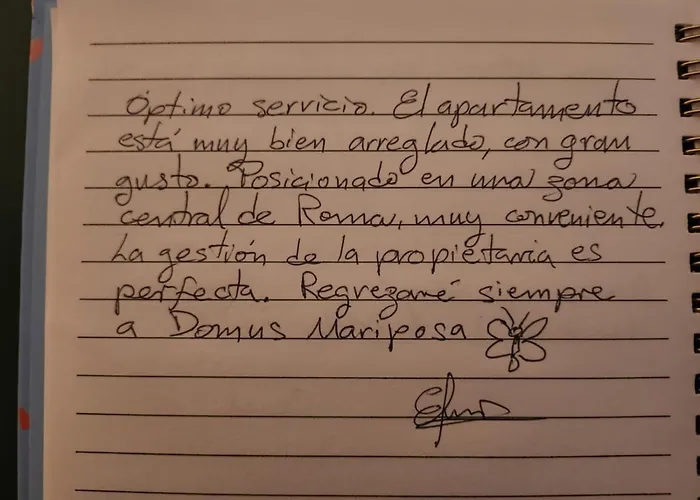 Óptimo servicio. El apartamento
está muy bien arreglado, con gran
gusto. Posicionado en una zona
central de Roma, muy conveniente.
La gestión de la propietaria es
perfecta. Regrezamé siempre
a Domus Mariposa